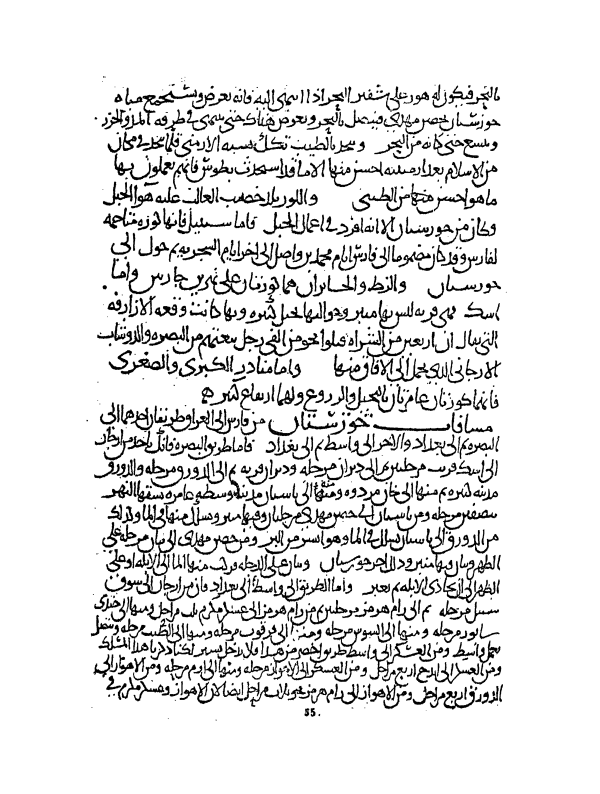 بالبحر فيكون له هور على شفير البحر اذا انتهى اليه فانه يعرض وتستجمع مياه
خوزستان بحصن مهدي فيتصل بالبحر ويعرض هناك حتى ينتهي في طرفه المد والجزر
ويتسع حتى كانه من البحر ويتخذ بالطيب تكك تشبه الارمني قلما تتخذ في مكان
من الاسلام بعد ارمينيه احسن منها الا ما قد استحدث بطوس فانهم يعملون بها
ما هو احسن منها من الطيبي واللور بلد خصب الغالب عليه هوا الجبل
وكان من خورستان الا انه افرد في اعمال الجبل فاما سنبيل فانها كوره متاخمه
لفارس وقد كان مضموما الى فارس ايام محمد بن واصل الى اخر ايام السجزيه ثم حول الى
خورستان والزط والخابران هما كورتان على نهرين جارين واما
اسك فهي قريه ليس بها منبر وحواليها نخيل كثيره وبها كانت وقعه الازارقه
التي يقال ان اربعين من الشراه قتلوا نحو من الفي رجل تبعتهم من البصره والدوشاب
الارجاني الذي يحمل الى الافاق منها واما مناذر الكبرى والصغرى
فانهما كورتان عامرتان بالنخيل والزروع ولهما ارتفاع كثير
مسافات خوزستان من فارس الى العراق طريقان احدهما الى
البصره ثم الى بغداد والاخر الى واسط ثم الى بغداد فاما طريق البصره فانك تاخذ من ارجان
الى اسك قريه مرحلتين ثم الى ديران مرحله وديران قريه ثم الى الدورق مرحله والدورق
مدينه كبيره ثم منها الى خان مردويه ومنها الى باسيان مدينه متوسطه عامره يشقها النهر
نصفين مرحله ومن باسيان الى حصن مهدي مرحلتان وفيها منبر ويسلك منها في الما وكذلك
من الدورق الى باسيان يسلك في الما وهو ايسر من البر ومن حصن مهدي الى بيان مرحله على
الظهر وبيان بها منبر وذلك اخر خورستان وبيان على الدجله فيركب منها الما الى الابله او على
الظهر الى ان يحاذي الابله ثم يعبر واما الطريق الى واسط الى بغداد فان من ارجان الى سوق
سنبيل مرحله ثم الى رام هرمز مرحلتين ثم من رام هرمز الى عسكر مكرم ثلث مراحل ومنها الى جندي
سابور مرحله ومنها الى السوس مرحله ومنها الى قرقوب مرحله ومنها الى الطيب مرحله ويتصل
بعمل واسط ومن العسكر الى واسط طريق اخصر من هذا فلا يدخل تستر لكنا ذكرنا هذا المسلك
ومن العسكر الى ايذج اربع مراحل ومن العسكر الى الاهواز مرحله ومنها الى ازم مرحله ومن الاهواز الى
الدورق اربع مراحل ومن الاهواز الى رام هرمز نحو ثلاث مراحل ايضا لان الاهواز وعسكر مكرم في
55.